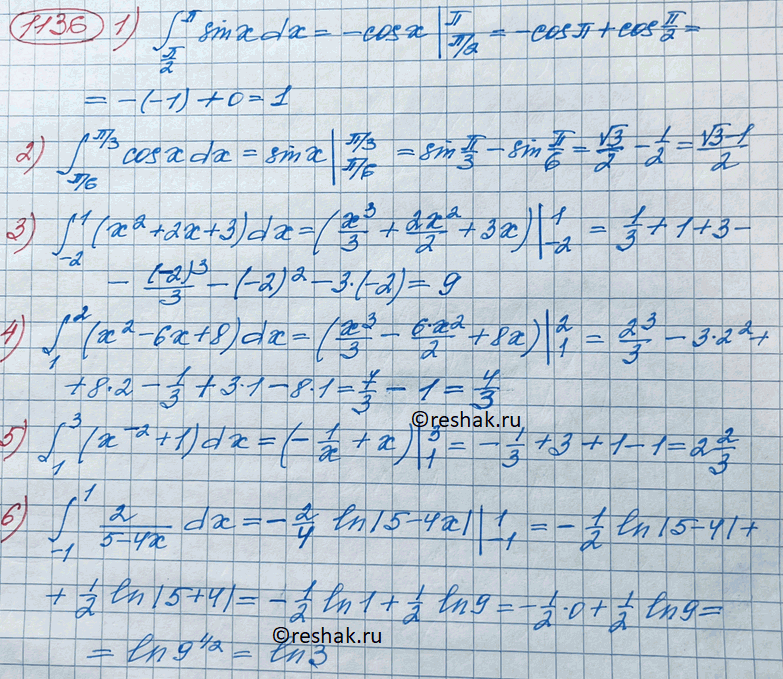 1136 1) ∫_{π/2}^{π} sinx dx = -cosx |_{π/2}^{π} = -cosπ + cos π/2 =
= -(-1) + 0 = 1
2) ∫_{π/6}^{π/3} cosx dx = sinx |_{π/6}^{π/3} = sin π/3 - sin π/6 = √3/2 - 1/2 = (√3-1)/2
3) ∫_{-2}^{1} (x² + 2x + 3) dx = (x³/3 + 2x²/2 + 3x) |_{-2}^{1} = 1/3 + 1 + 3 -
- (-2)³/3 - (-2)² - 3·(-2) = 9
4) ∫_{1}^{2} (x² - 6x + 8) dx = (x³/3 - 6·x²/2 + 8x) |_{1}^{2} = 2³/3 - 3·2² +
+ 8·2 - 1/3 + 3·1 - 8·1 = 7/3 - 1 = 4/3
©reshak.ru
5) ∫_{1}^{3} (x⁻² + 1) dx = (-1/x + x) |_{1}^{3} = -1/3 + 3 + 1 - 1 = 2 2/3
6) ∫_{-1}^{1} 2/(5-4x) dx = -2/4 ln|5-4x| |_{-1}^{1} = -1/2 ln|5-4| +
+ 1/2 ln|5+4| = -1/2 ln1 + 1/2 ln9 = -1/2·0 + 1/2 ln9 =
©reshak.ru
= ln9^{1/2} = ln3